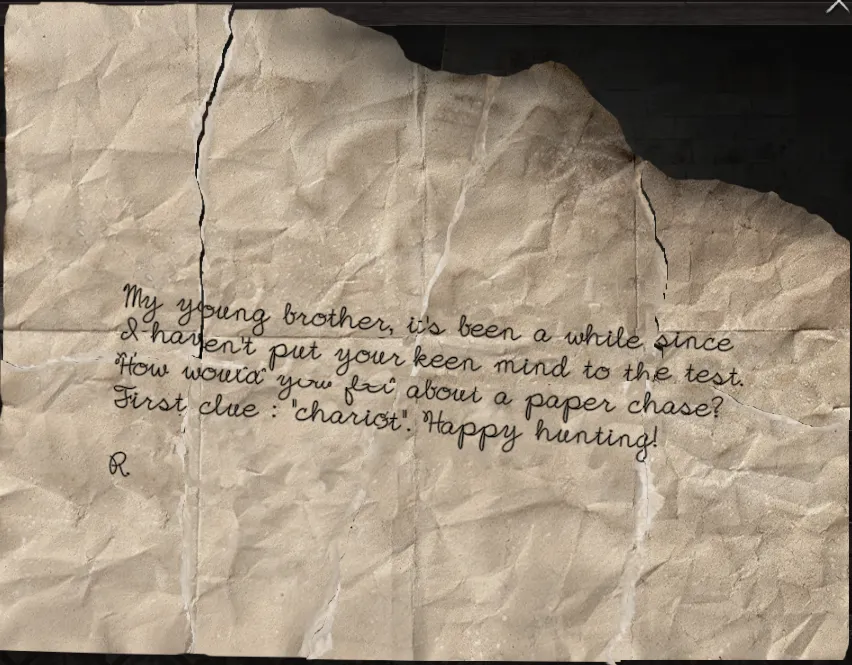 My young brother, it's been a while since
I haven't put your keen mind to the test.
How would you about a paper chase?
First clue : "chariot". Happy hunting!
R